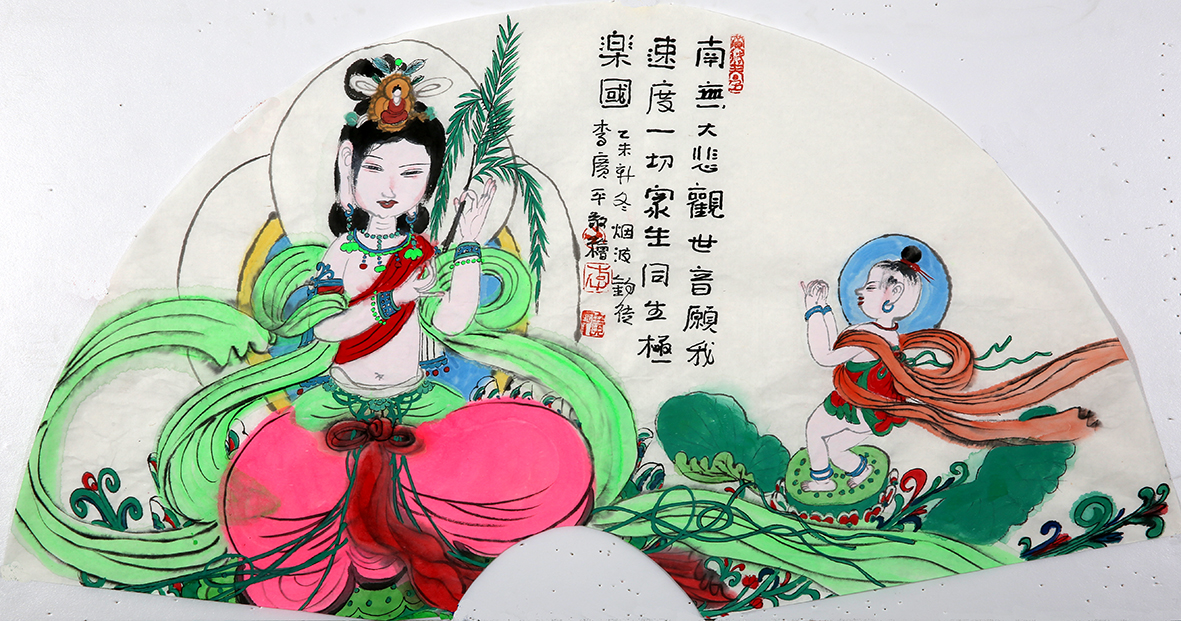 南無大悲觀世音願我
速度一切衆生同生極
楽國
乙未冬烟波釣徒
李廣平敬繪